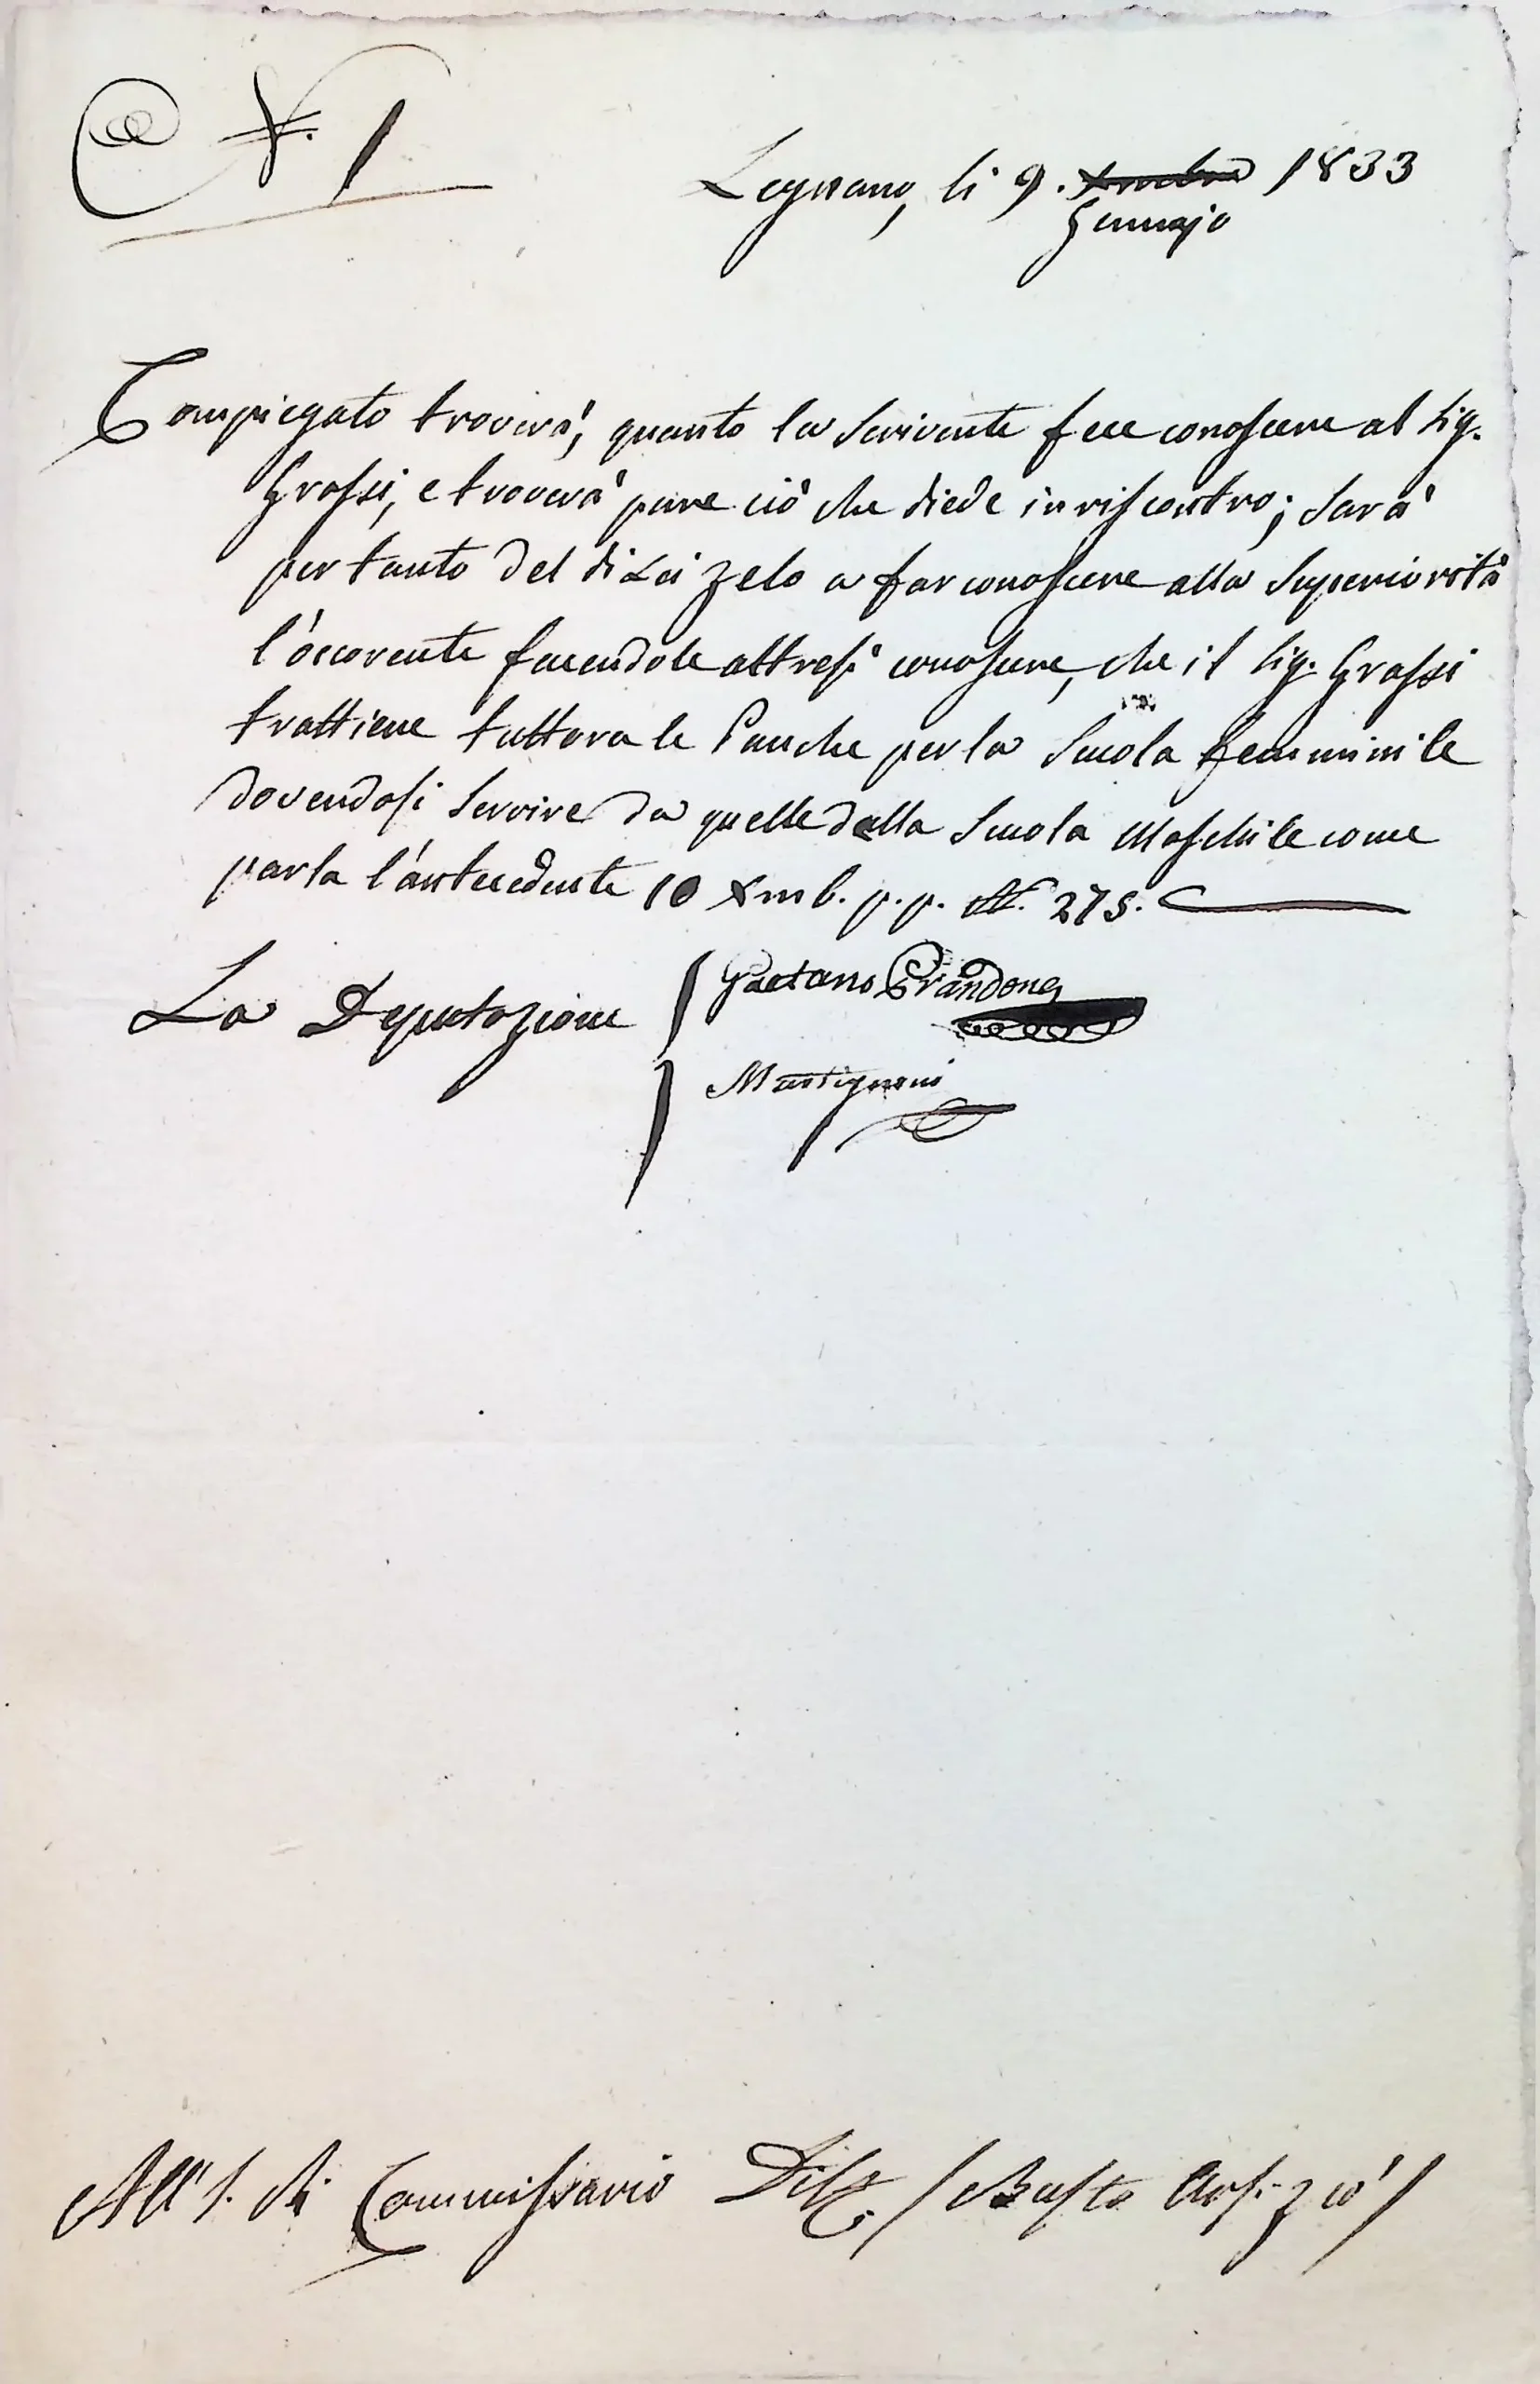 N. 1
Legnano, li 9. Xmbre 1833
Gennajo
Compiegato troverà, quanto la Scrivente fece conoscere al Sig.
Grassi, e troverà pure ciò che diede in riscontro; Sarà
per tanto del di Lei zelo a far conoscere alla Superiorità
l'óccorente facendole altresì conoscere, che il Sig. Grassi
trattiene tuttora le Panche per la Scuola femminile
dovendosi Servire da quelle della Scuola Maschile come
parla l'ántecedente 10 Xmb. p.p. N. 275.
La Deputazione
Gaetano Prandona
Martignoni
All' I. R. Commissario Dist. / Busto Arsizio /